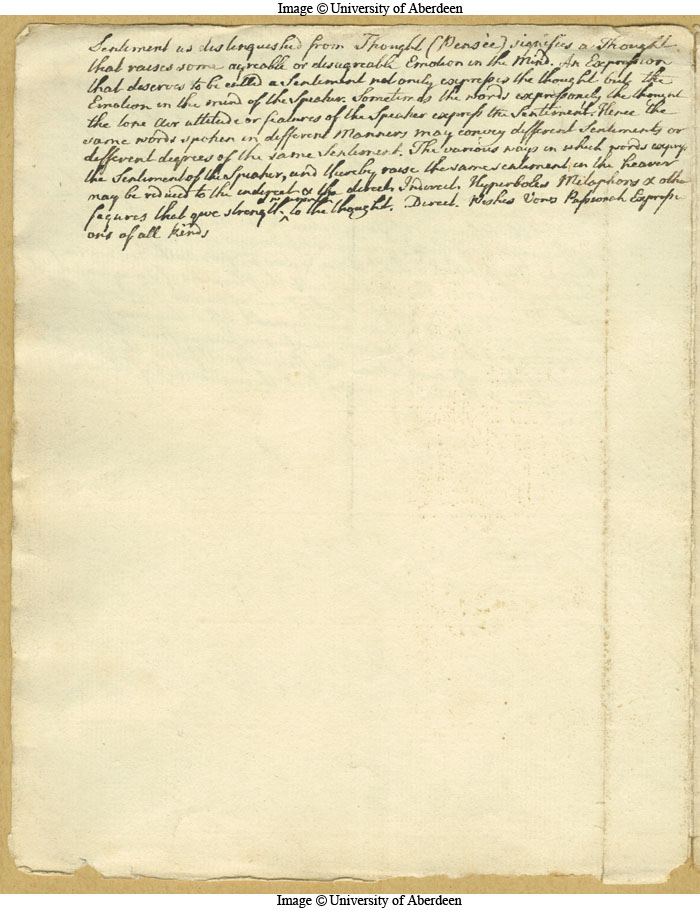 Image © University of Aberdeen
Sentiment as distinguished from Thought (Pensée) signifies a Thought
that raises some agreable or disagreable Emotion in the Mind. An Expression
that deserves to be called a Sentiment not only expresses the thought but the
Emotion in the mind of the Speaker. Sometimes the words express only the thought
the tone Air attitude or features of the Speaker express the Sentiment. Hence the
same words spoken in different Manners may convey different Sentiments or
different degrees of the same Sentiment. The various ways in which words express
the Sentiments of the Speaker, and thereby raise the same sentiment in the hearer
may be reduced to the indirect & the direct. Indirect. Hyperboles Metaphors & other
figures that give strength to the thought. Direct. Wishes Vows Passionate Expressi
ons of all kinds
Image © University of Aberdeen